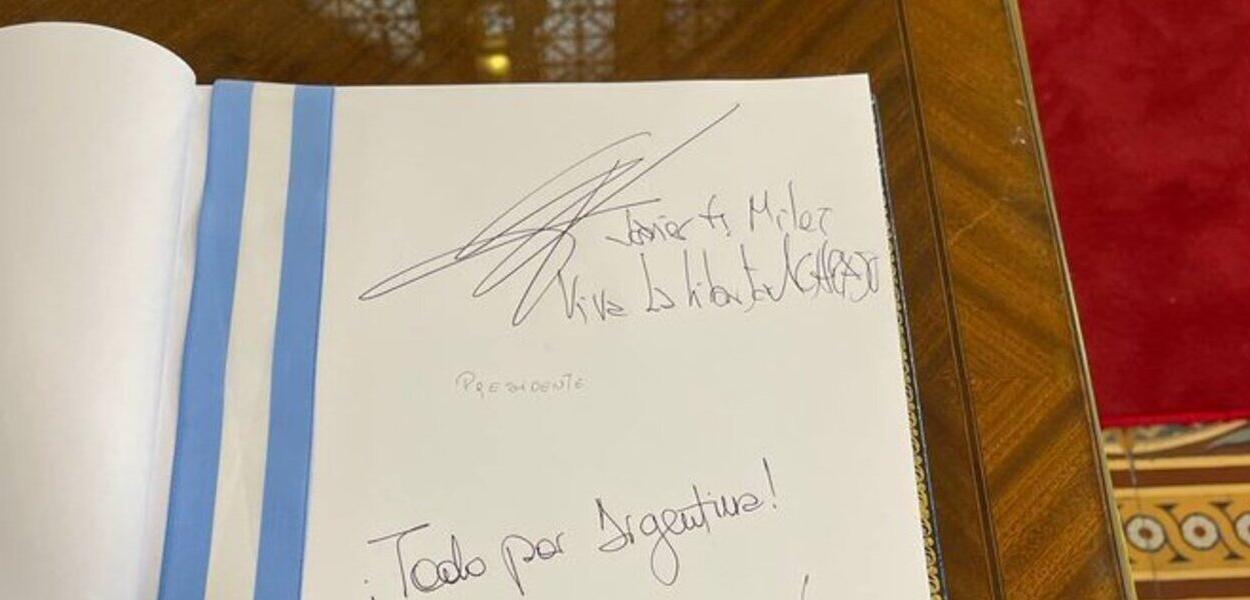 Javier G. Milei
Viva La Libertad CARAJO
PRESIDENTE
¡Todo por Argentina!